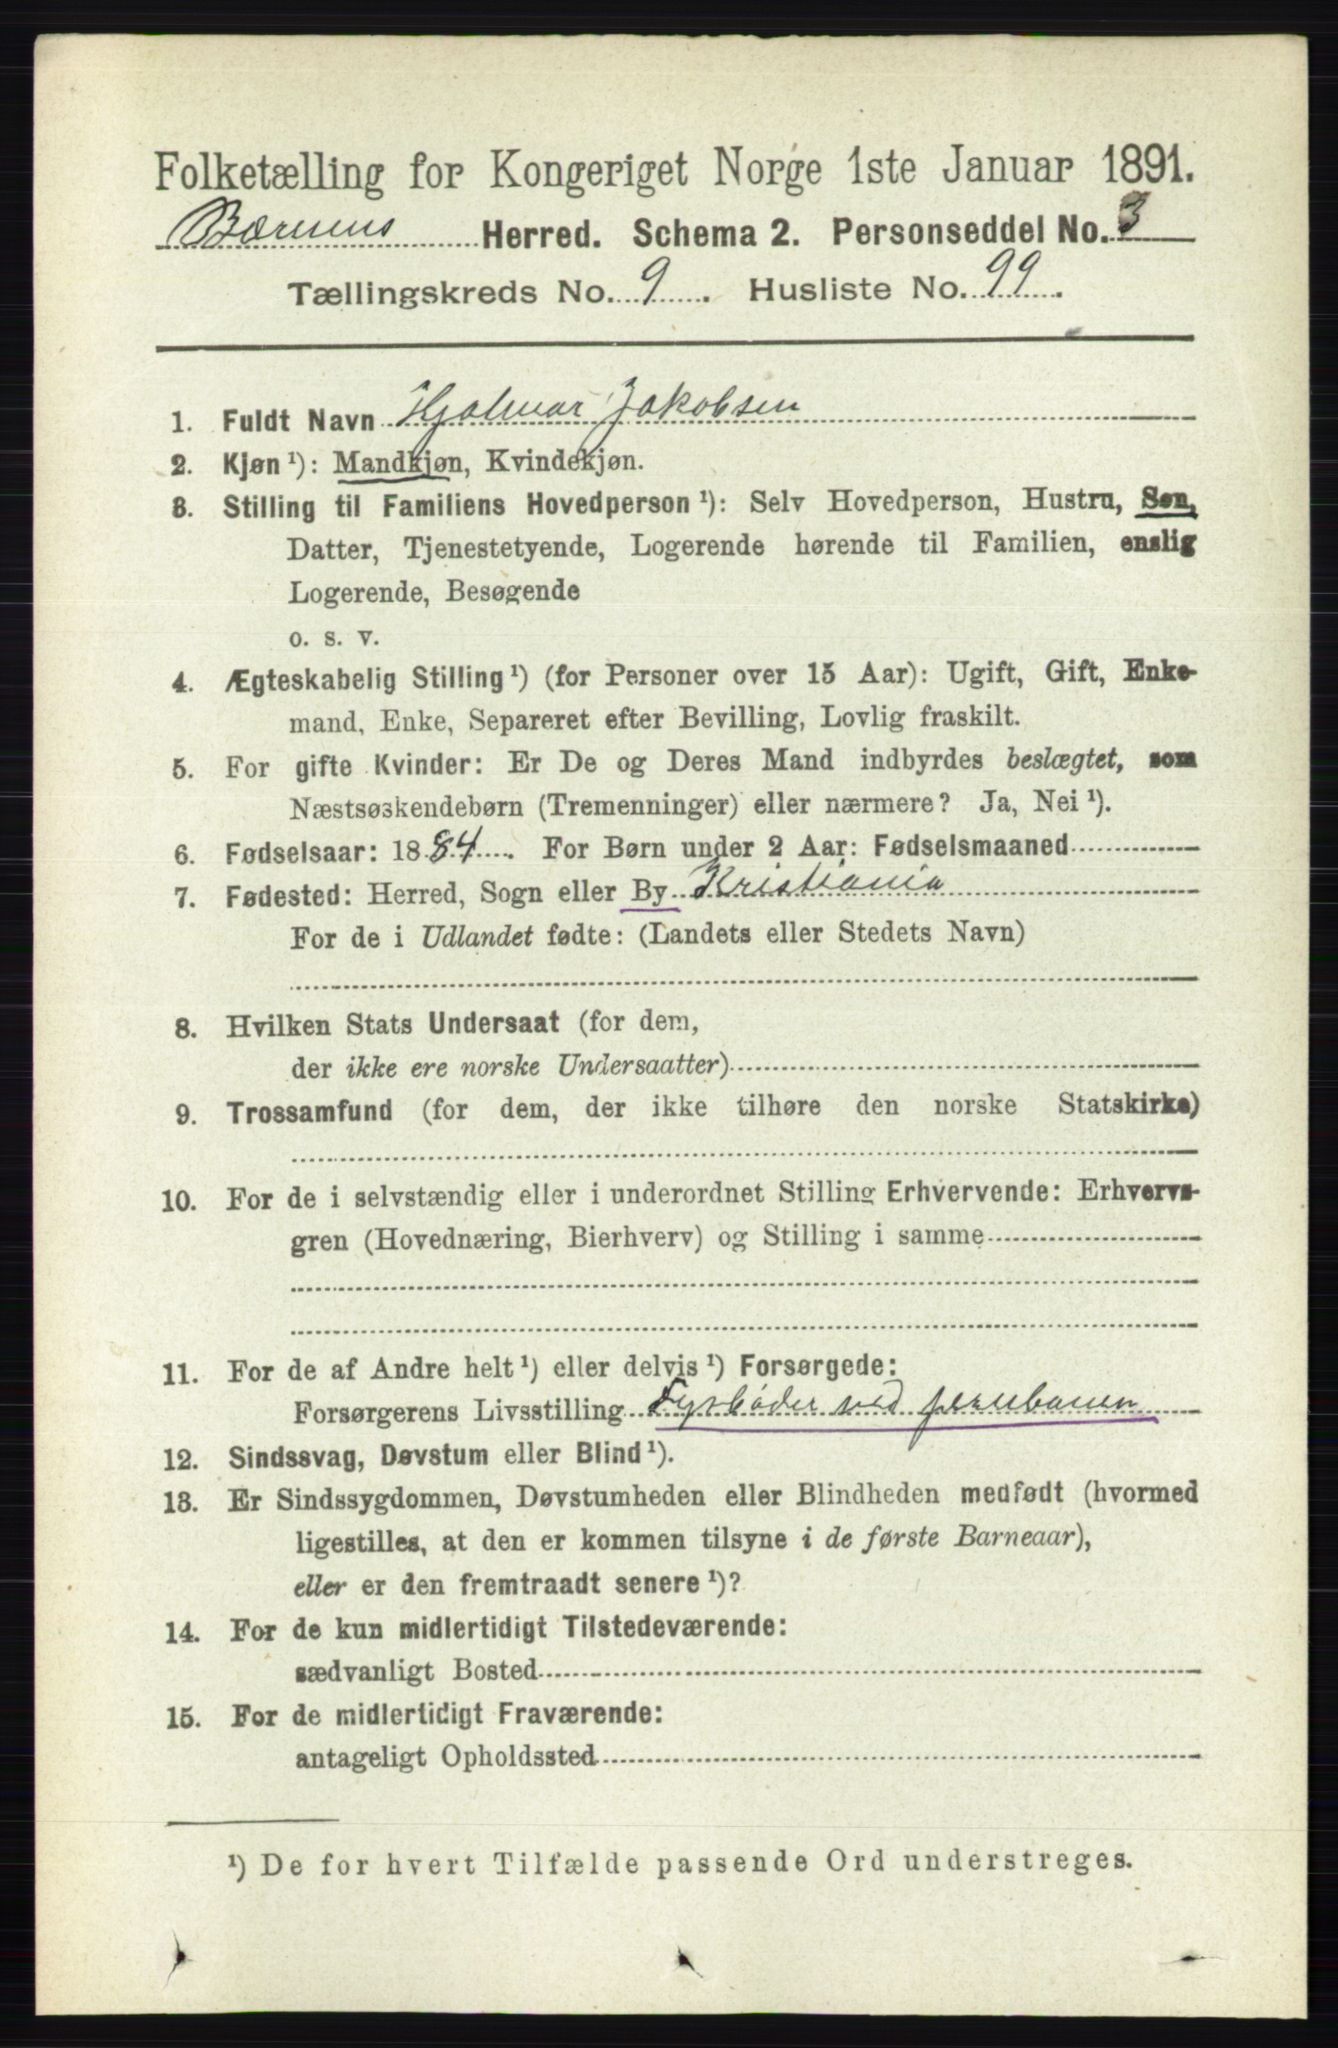 Folketælling for Kongeriget Norge 1ste Januar 1891.
Bærums Herred. Schema 2. Personseddel No. 3
Tællingskreds No. 9. Husliste No. 99.
1. Fuldt Navn Hjalmar Jakobsen
2. Kjøn ¹): Mandkjøn, Kvindekjøn.
3. Stilling til Familiens Hovedperson ¹): Selv Hovedperson, Hustru, Søn,
Datter, Tjenestetyende, Logerende hørende til Familien, enslig
Logerende, Besøgende
o. s. v.
4. Ægteskabelig Stilling ¹) (for Personer over 15 Aar): Ugift, Gift, Enke-
mand, Enke, Separeret efter Bevilling, Lovlig fraskilt.
5. For gifte Kvinder: Er De og Deres Mand indbyrdes beslægtet, som
Næstsøskendebørn (Tremenninger) eller nærmere? Ja, Nei ¹).
6. Fødselsaar: 1884. For Børn under 2 Aar: Fødselsmaaned
7. Fødested: Herred, Sogn eller By Kristiania
For de i Udlandet fødte: (Landets eller Stedets Navn)
8. Hvilken Stats Undersaat (for dem,
der ikke ere norske Undersaatter)
9. Trossamfund (for dem, der ikke tilhøre den norske Statskirke)
10. For de i selvstændig eller i underordnet Stilling Erhvervende: Erhvervs-
gren (Hovednæring, Bierhverv) og Stilling i samme
11. For de af Andre helt ¹) eller delvis ¹) Forsørgede:
Forsørgerens Livsstilling Fyrbøder ved jernbanen
12. Sindssvag, Døvstum eller Blind ¹).
13. Er Sindssygdommen, Døvstumheden eller Blindheden medfødt (hvormed
ligestilles, at den er kommen tilsyne i de første Barneaar),
eller er den fremtraadt senere ¹)?
14. For de kun midlertidigt Tilstedeværende:
sædvanligt Bosted
15. For de midlertidigt Fraværende:
antageligt Opholdssted
¹) De for hvert Tilfælde passende Ord understreges.